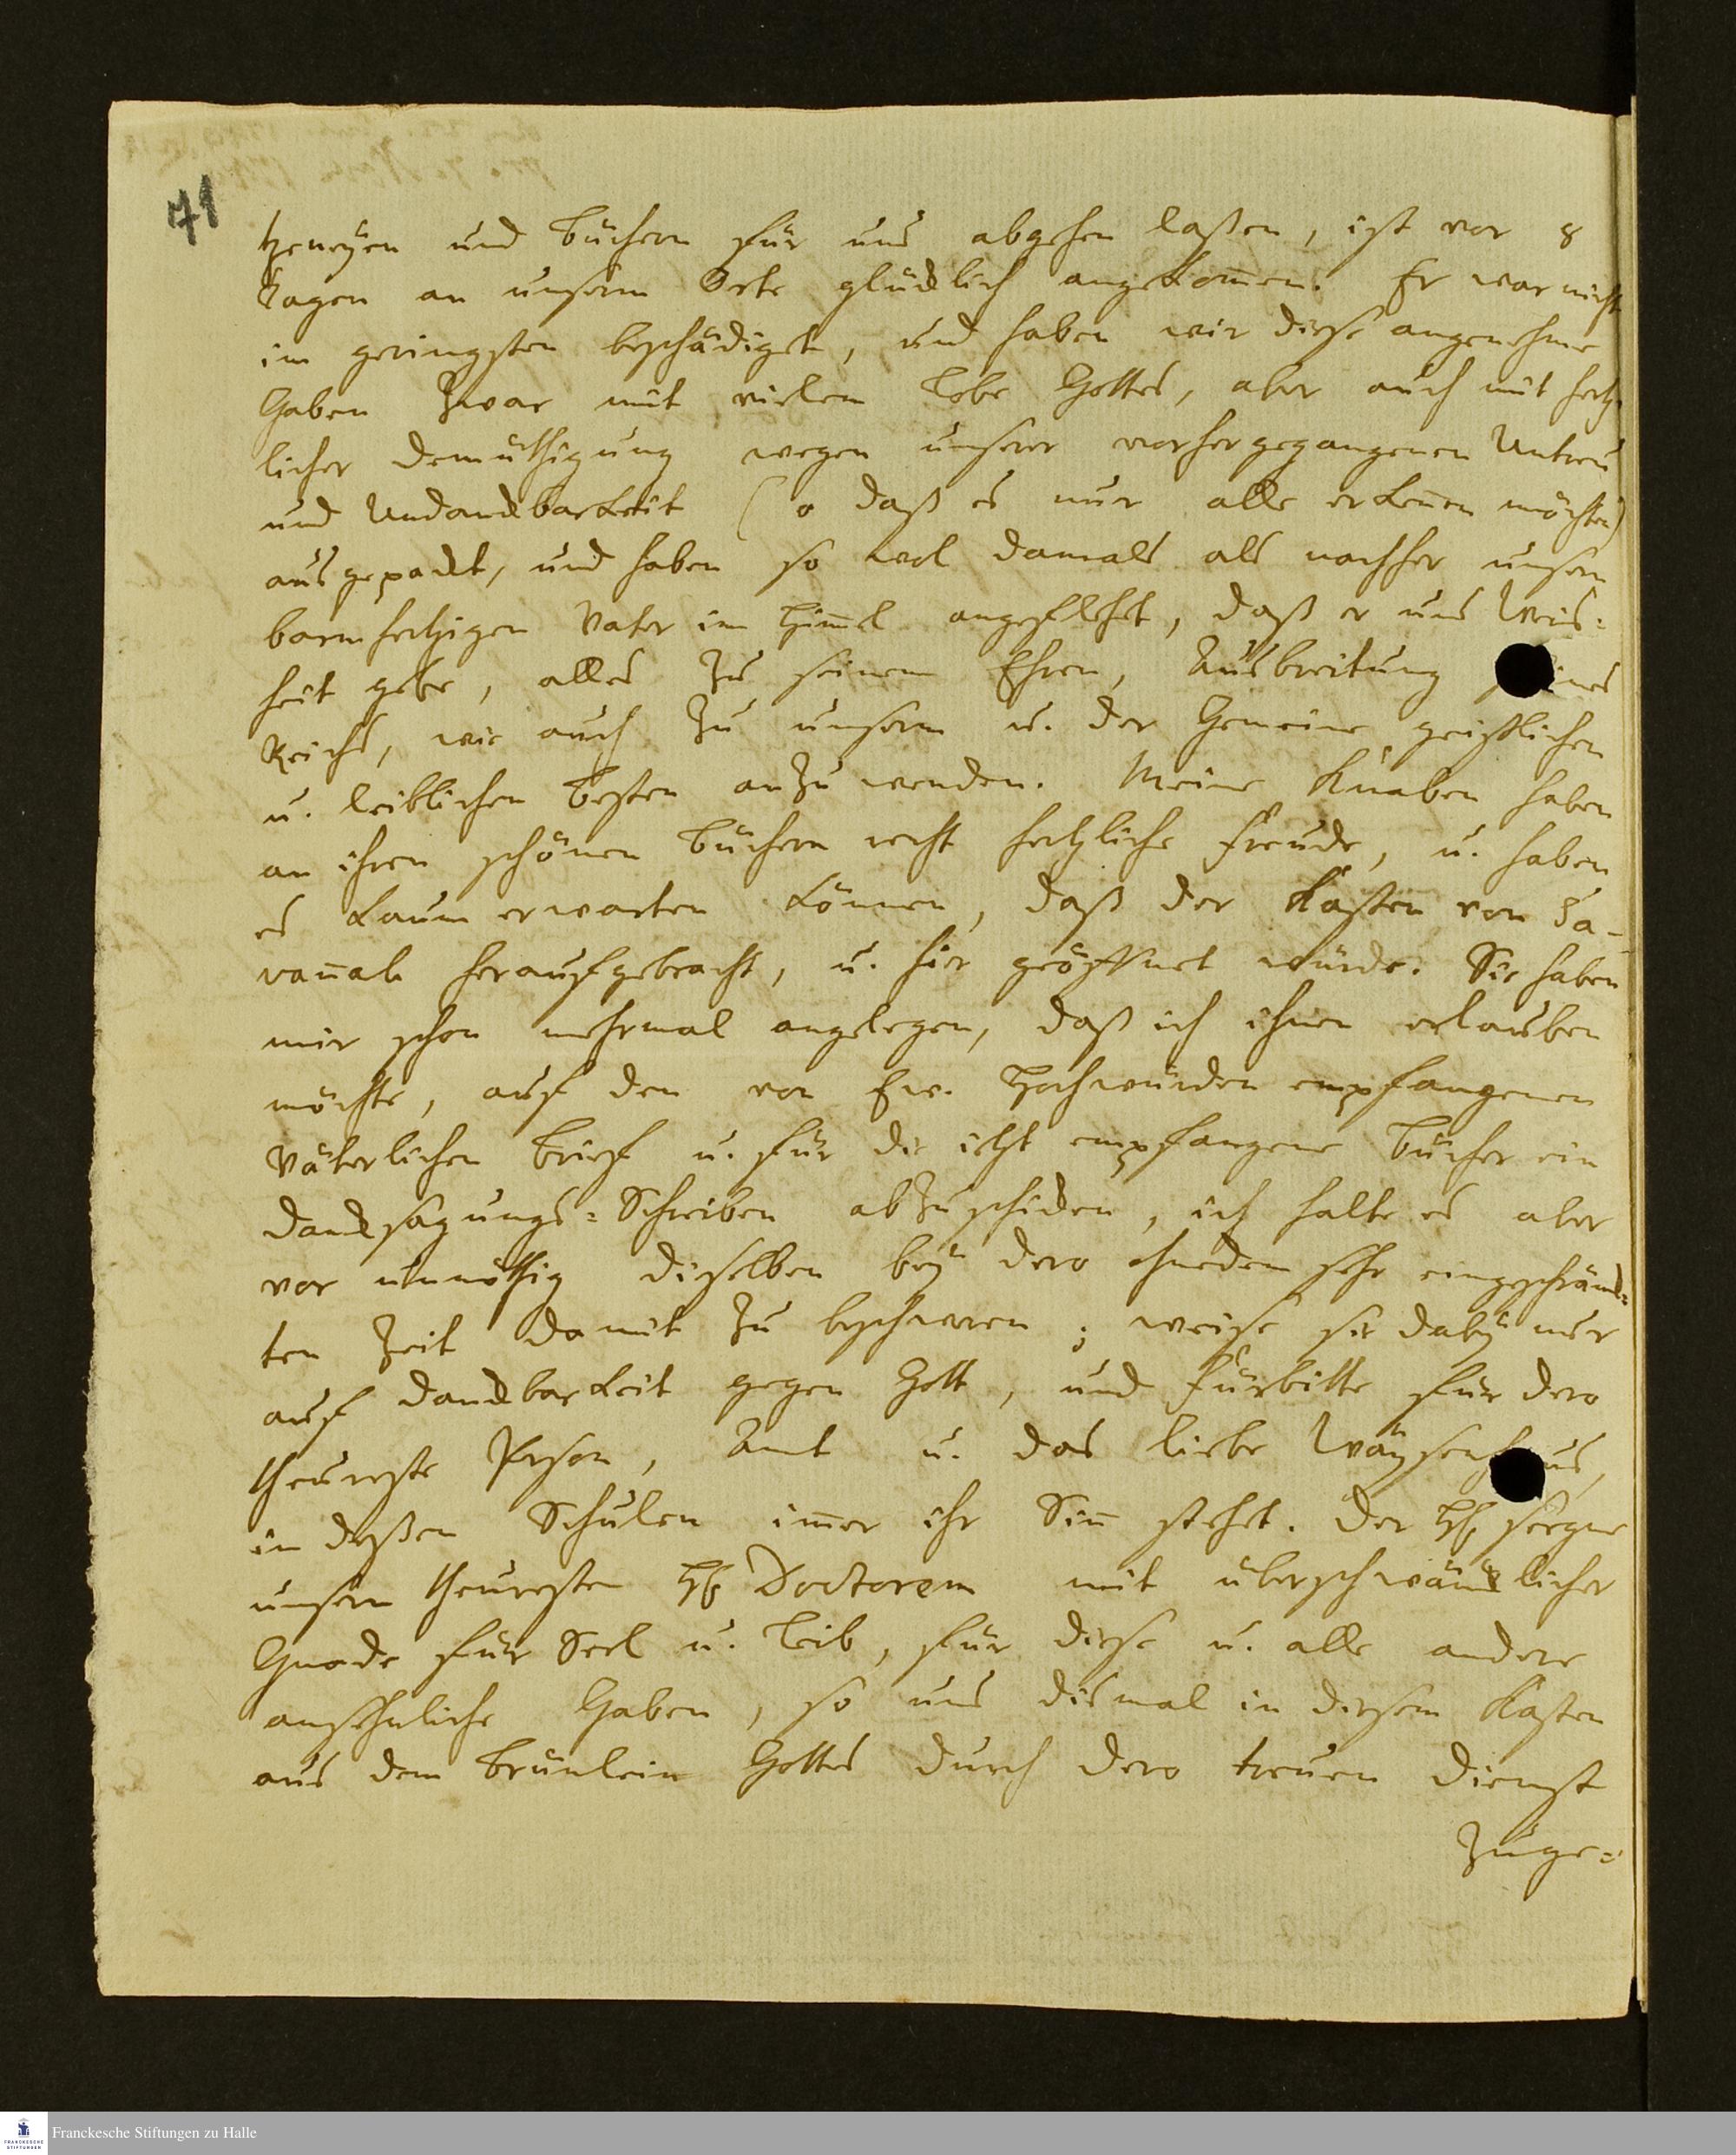 71
tzeneyen und Büchern für uns abgehen laßen, ist vor 8
Tagen an unserm Orte glücklich angekom̄en. Er war nicht
im geringsten beschädiget, und haben wir diese angenehme
Gaben zwar mit vielem Lobe Gottes, aber auch mit hertz-
licher Demüthigung wegen unserer vorhergegangenen Untreu
und Undanckbarkeit (o daß es nur alle erken̄en möchten)
ausgepackt, und haben so wol damals als nachher unsern
barmhertzigen Vater im Him̄el angeflehet, daß er uns Weis-
heit gebe, alles zu seinem Ehren, Ausbreitung seines
Reichs, wie auch zu unserm u. der Gemeine geistlichen
u. leiblichen Besten anzuwenden. Meine Knaben haben
an ihren schönen Büchern recht hertzliche Freude, u. haben
es kaum erwarten können, daß der Kasten von Sa-
van̄ah heraufgebracht, u. hier geöffnet würde. Sie haben
mir schon mehrmal angelegen, daß ich ihnen erlauben
möchte, auf den von Ew. Hochwürden empfangenen
Väterlichen Brief u. für die itzt empfangene Bücher ein
Dancksagungs-Schreiben abzuschicken, ich halte es aber
vor unnöthig dieselben bey dero ohnedem sehr eingeschränck-
ten Zeit damit zu beschweren; weise sie dabey nur
auf Danckbarkeit gegen Gott, und Fürbitte für dero
theureste Person, Amt u. das liebe Wäysenhaus,
in deßen Schulen im̄er ihr Sin̄ stehet. Der Hℓ seegne
unsern theuresten Hℓ Doctorem mit überschwäncklicher
Gnade für Seel u. Leib, für diese u. alle andere
ansehnliche Gaben, so uns dismal in diesem Kasten
aus dem Brünlein Gottes durch dero treuen Dienst
zuge-
Franckesche Stiftungen zu Halle